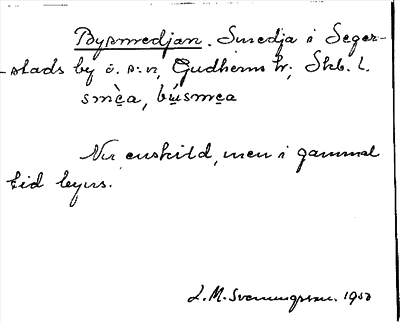 Bysmedjan. Smedja i Seger-
-stads by ö. s:n, Gudhems hr; Skb. l.
smèa, búsmea
Nu enskild, men i gammal
tid byns.
L. M. Svenungsson. 1950